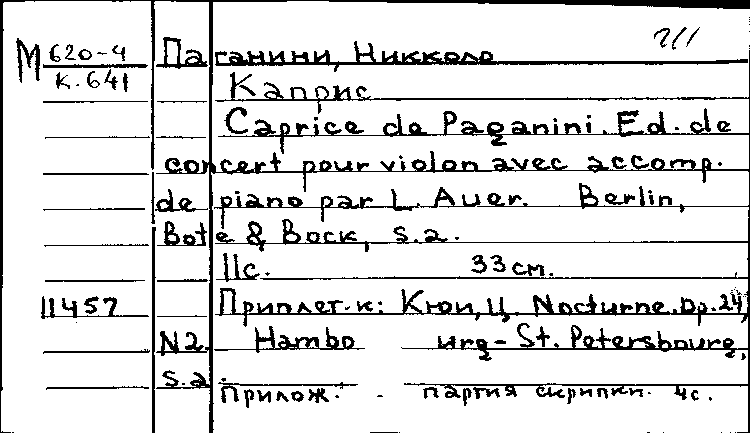 М 620-4 Паганини, Никколо
К. 641
Каприс
Caprice de Paganini. Ed. de
concert pour violon avec accomp.
de piano par L. Auer. Berlin,
Bote & Bock, s.a.
11с. 33см.
11457 Приплет. к: Кюи, Ц. Nocturne. Op. 24,
N2. Hambourg - St. Petersbourg,
s.a.
Прилож.: партия скрипки. 4с.